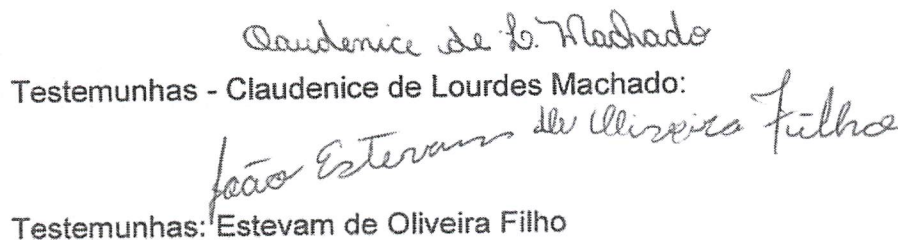 Claudenice de L. Machado
Testemunhas - Claudenice de Lourdes Machado:
João Estevam de Oliveira Filho
Testemunhas: Estevam de Oliveira Filho